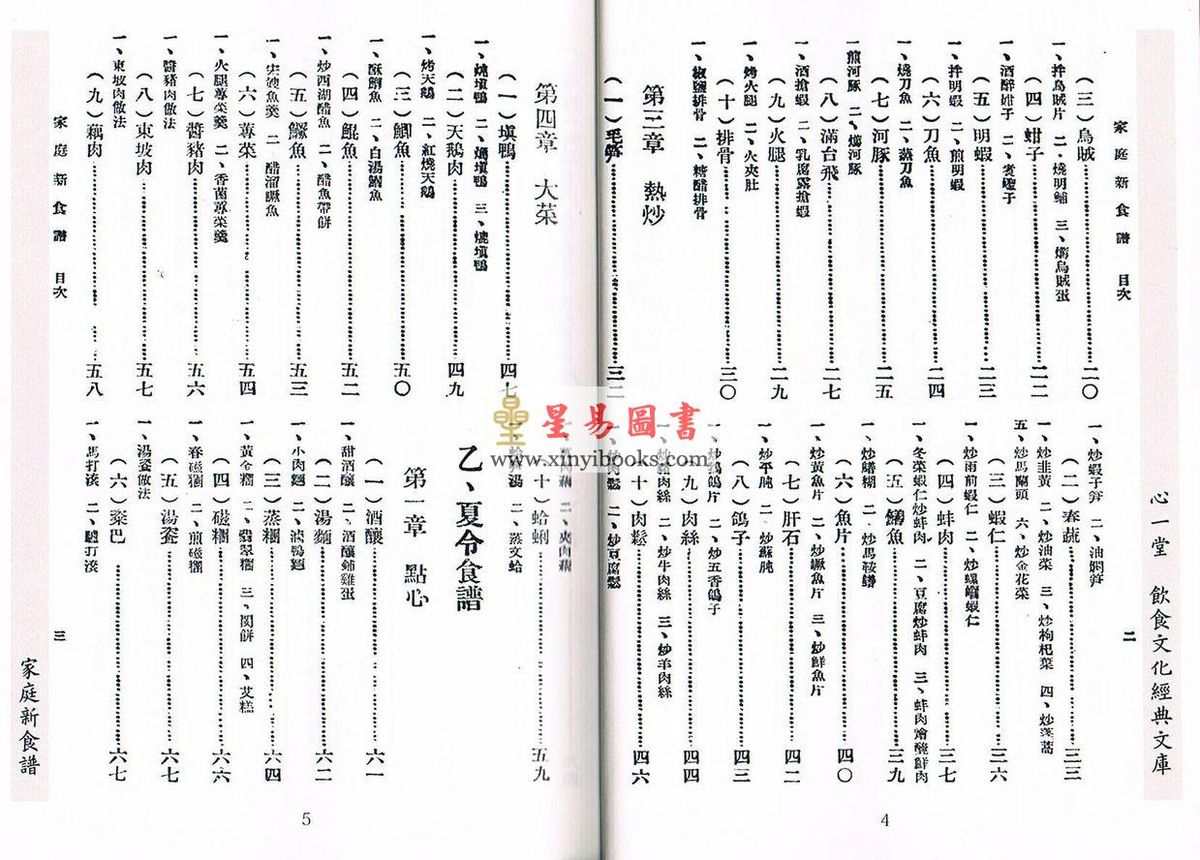 心一堂 飲食文化經典文庫
家庭新食譜 目次
二
(三)烏賊……二〇
一、拌烏賊片 二、燒明鯆 三、燜烏賊蛋
(四)蚶子……二二
(五)明蝦……二三
一、拌明蝦 二、煎明蝦
(六)刀魚……二四
一、燒刀魚 二、蒸刀魚
(七)河豚……二五
煎河豚 二、燜河豚
(八)滿台飛……二七
一、酒搶蝦 二、乳腐露搶蝦
(九)火腿……二九
一、烤火腿 二、火夾肚
(十)排骨……三〇
一、椒鹽排骨 二、糖醋排骨
第三章 熱炒
(一)毛筍……三二
一、炒蝦子筍 二、油燜筍
(二)春蔬……三三
一、炒韭黃 二、炒油菜 三、炒枸杞葉 四、炒蓬蒿
五、炒馬蘭頭 六、炒金花菜
(三)蝦仁……三六
一、炒雨前蝦仁
(四)蚌肉……三七
一、冬菜蝦仁炒蚌肉 二、豆腐炒蚌肉 三、蚌肉燴醃鮮肉
(五)鱔魚……三九
一、炒鱔糊 二、炒馬鞍鱔
(六)魚片……四〇
一、炒黃魚片 二、炒鱖魚片 三、炒鮮魚片
(七)肝石……四二
(八)鴿子……四三
二、炒五香鴿子
(九)肉絲……四四
二、炒牛肉絲 三、炒羊肉絲
(十)肉鬆……四六
二、炒豆腐鬆
4
第四章 大菜
(一)塡鴨……四七
(二)天鵝肉……四九
一、烤天鵝 二、紅燒天鵝
(三)鯽魚……五〇
一、酥鯽魚 二、白湯鯽魚
(四)鯤魚……五二
一、炒西湖醋魚 二、醋魚帶餅
(五)鱖魚……五三
一、宋嫂魚羹 二、醋溜鱖魚
(六)蓴菜……五四
一、火腿蓴菜羹 二、香菌蓴菜羹
(七)醬豬肉……五六
一、醬豬肉做法
(八)東坡肉……五七
一、東坡肉做法
(九)藕肉……五八
二、夾肉藕
(十)蛤蜊……五九
二、蒸文蛤
乙、夏令食譜
第一章 點心
(一)酒釀……六一
一、甜酒釀 二、酒釀鋪雞蛋
(二)湯麵……六二
一、小肉麵
(三)蒸糰……六四
一、黃金糰 二、翡翠糰 三、閔餅 四、艾糕
(四)磁糰……六六
一、春磁糰 二、煎磁糰
(五)湯餈……六七
一、湯餈做法
(六)粢巴……六七
一、馬打滾 二、驢打滾
家庭新食譜 目次
三
家庭新食譜
5
星易圖書
www.xinyibooks.com